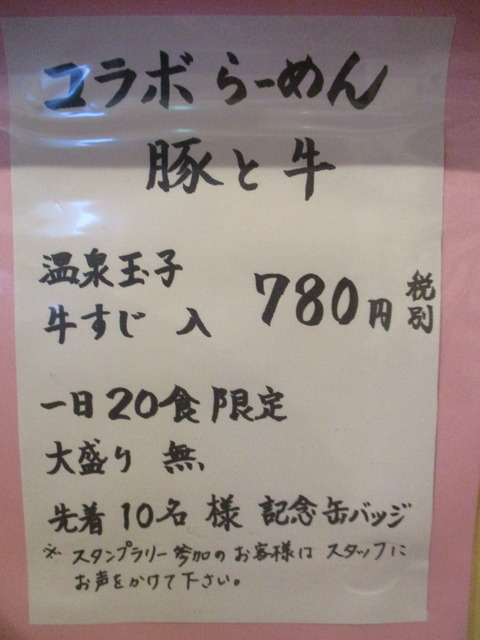 コラボらーめん
豚と牛
温泉玉子
牛すじ 入 780円 税別
一日20食限定
大盛り 無
先着10名様 記念缶バッジ
※ スタンプラリー参加のお客様は スタッフに
お声をかけて下さい。